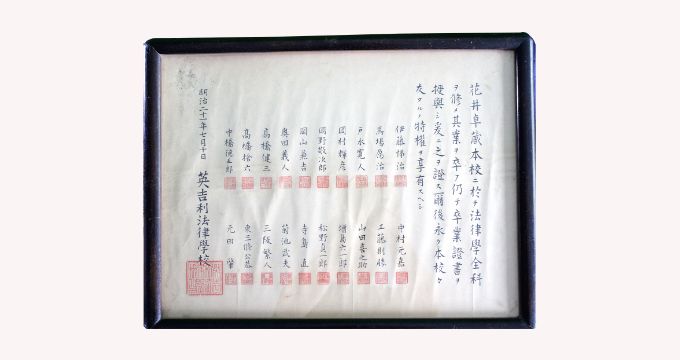 花井卓蔵本校ニ於テ法律學全科
ヲ修メ其業ヲ卒フ仍テ卒業證書ヲ
授與シ爰ニ之ヲ證ス爾後永ク本校々
友タルノ特權ヲ享有スヘシ
伊藤悌治
馬場愿治
戸水寛人
岡村輝彦
岡野敬次郎
岡山兼吉
奥田義人
高橋健三
高橋捨六
中橋徳五郎
中村元嘉
工藤則勝
山田喜之助
増島六一郎
松野貞一郎
寺島直
菊池武夫
三阪繁人
東三條公恭
元田肇
明治二十一年七月十日
英吉利法律學校